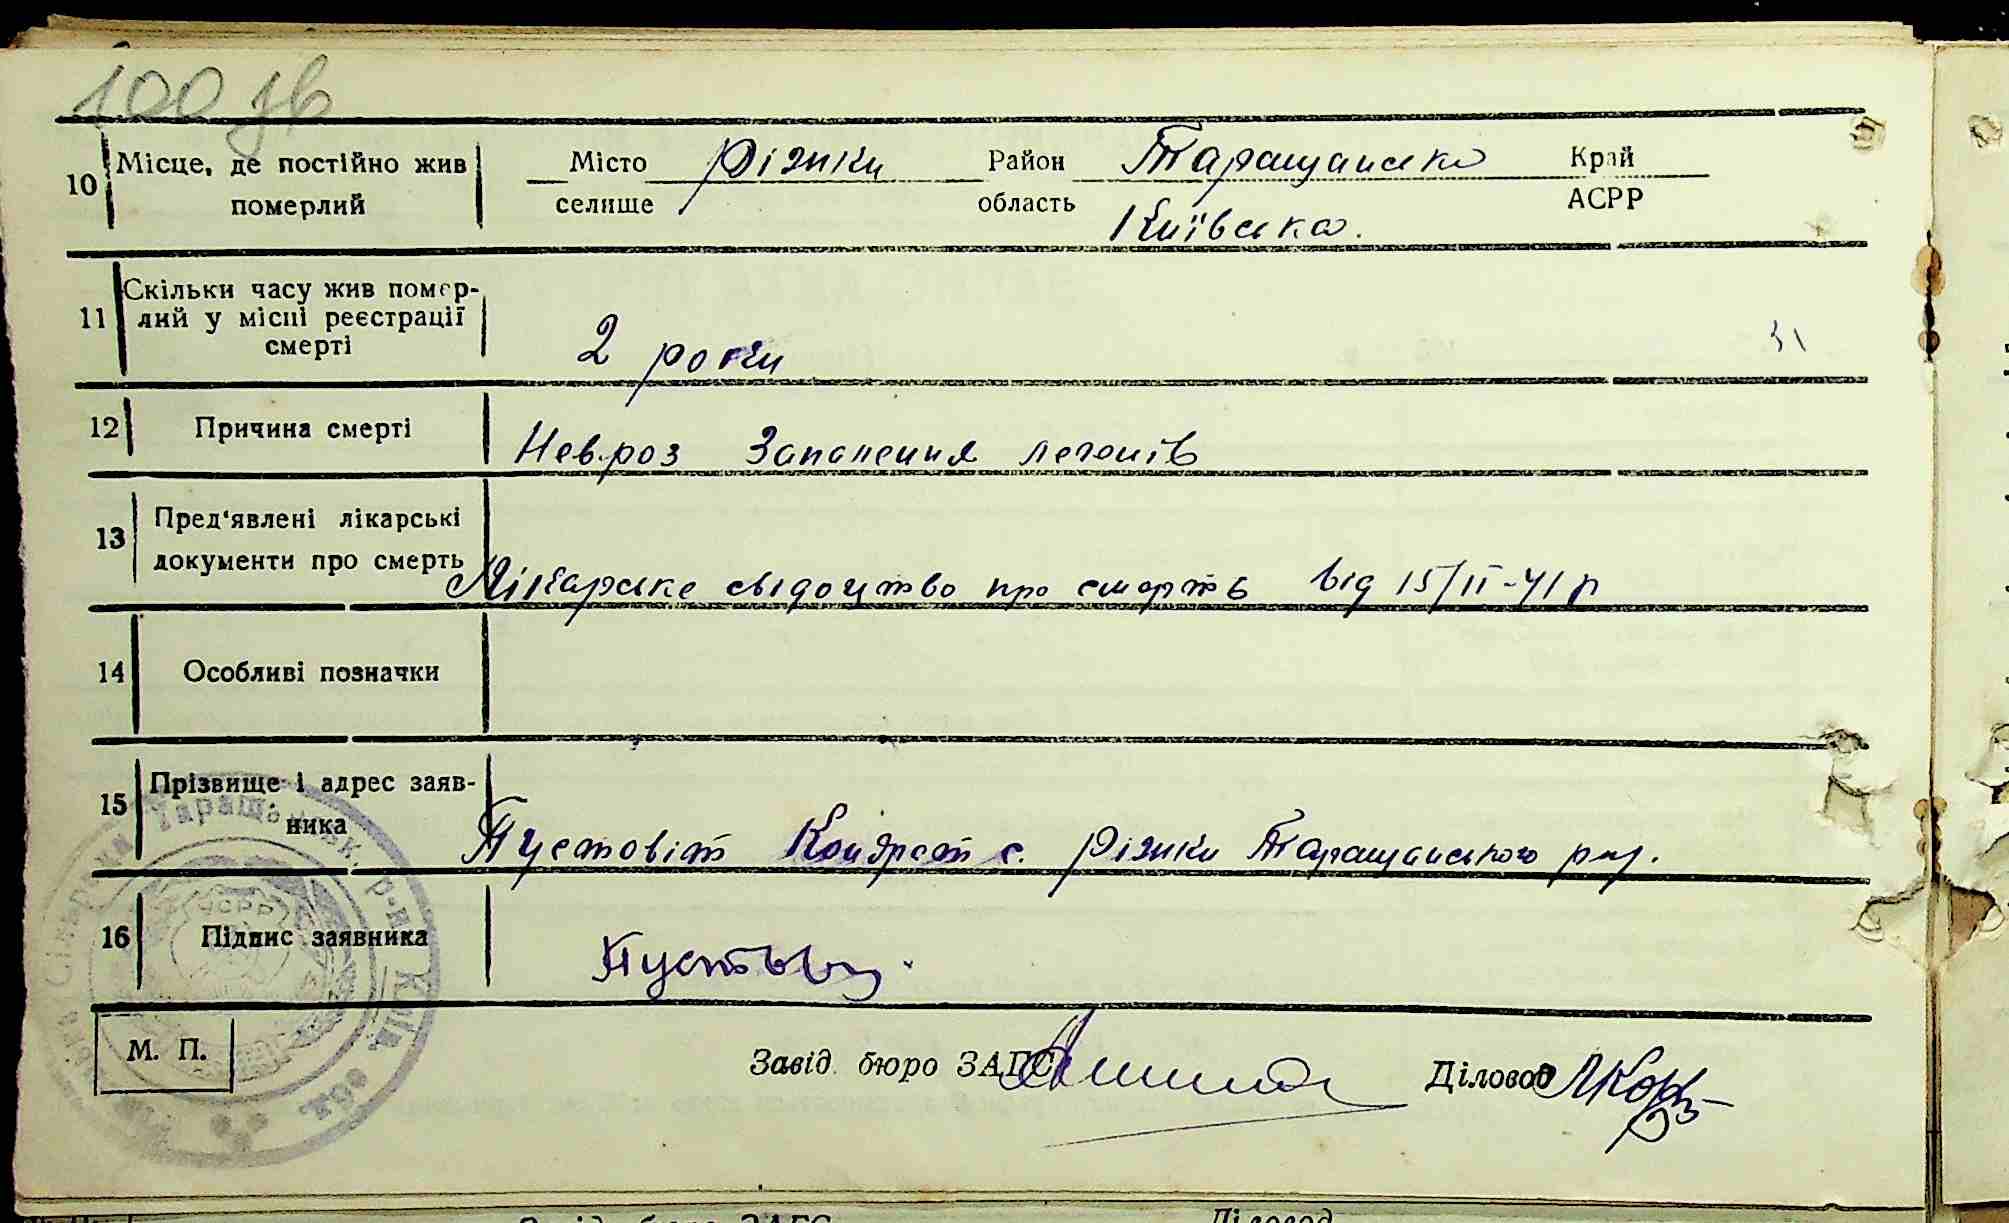 100 зв
10 Місце, де постійно жив Місто Різки Район Таращанска Край
померлий селище область Київска. АСРР
11 Скільки часу жив помер-
лий у місці реєстрації
смерті 2 роки
12 Причина смерті Невроз Запалення легенів
13 Пред'явлені лікарські
документи про смерть Лікарське свідоцтво про смерть від 15/II-41 р
14 Особливі позначки
15 Прізвище і адрес заяв-
ника Пустовіт Кондрат с. Різки Таращанського р-ну.
16 Підпис заявника Пустовіт
М. П. Завід. бюро ЗАГС Діловод
Завід. бюро ЗАГС Діловод